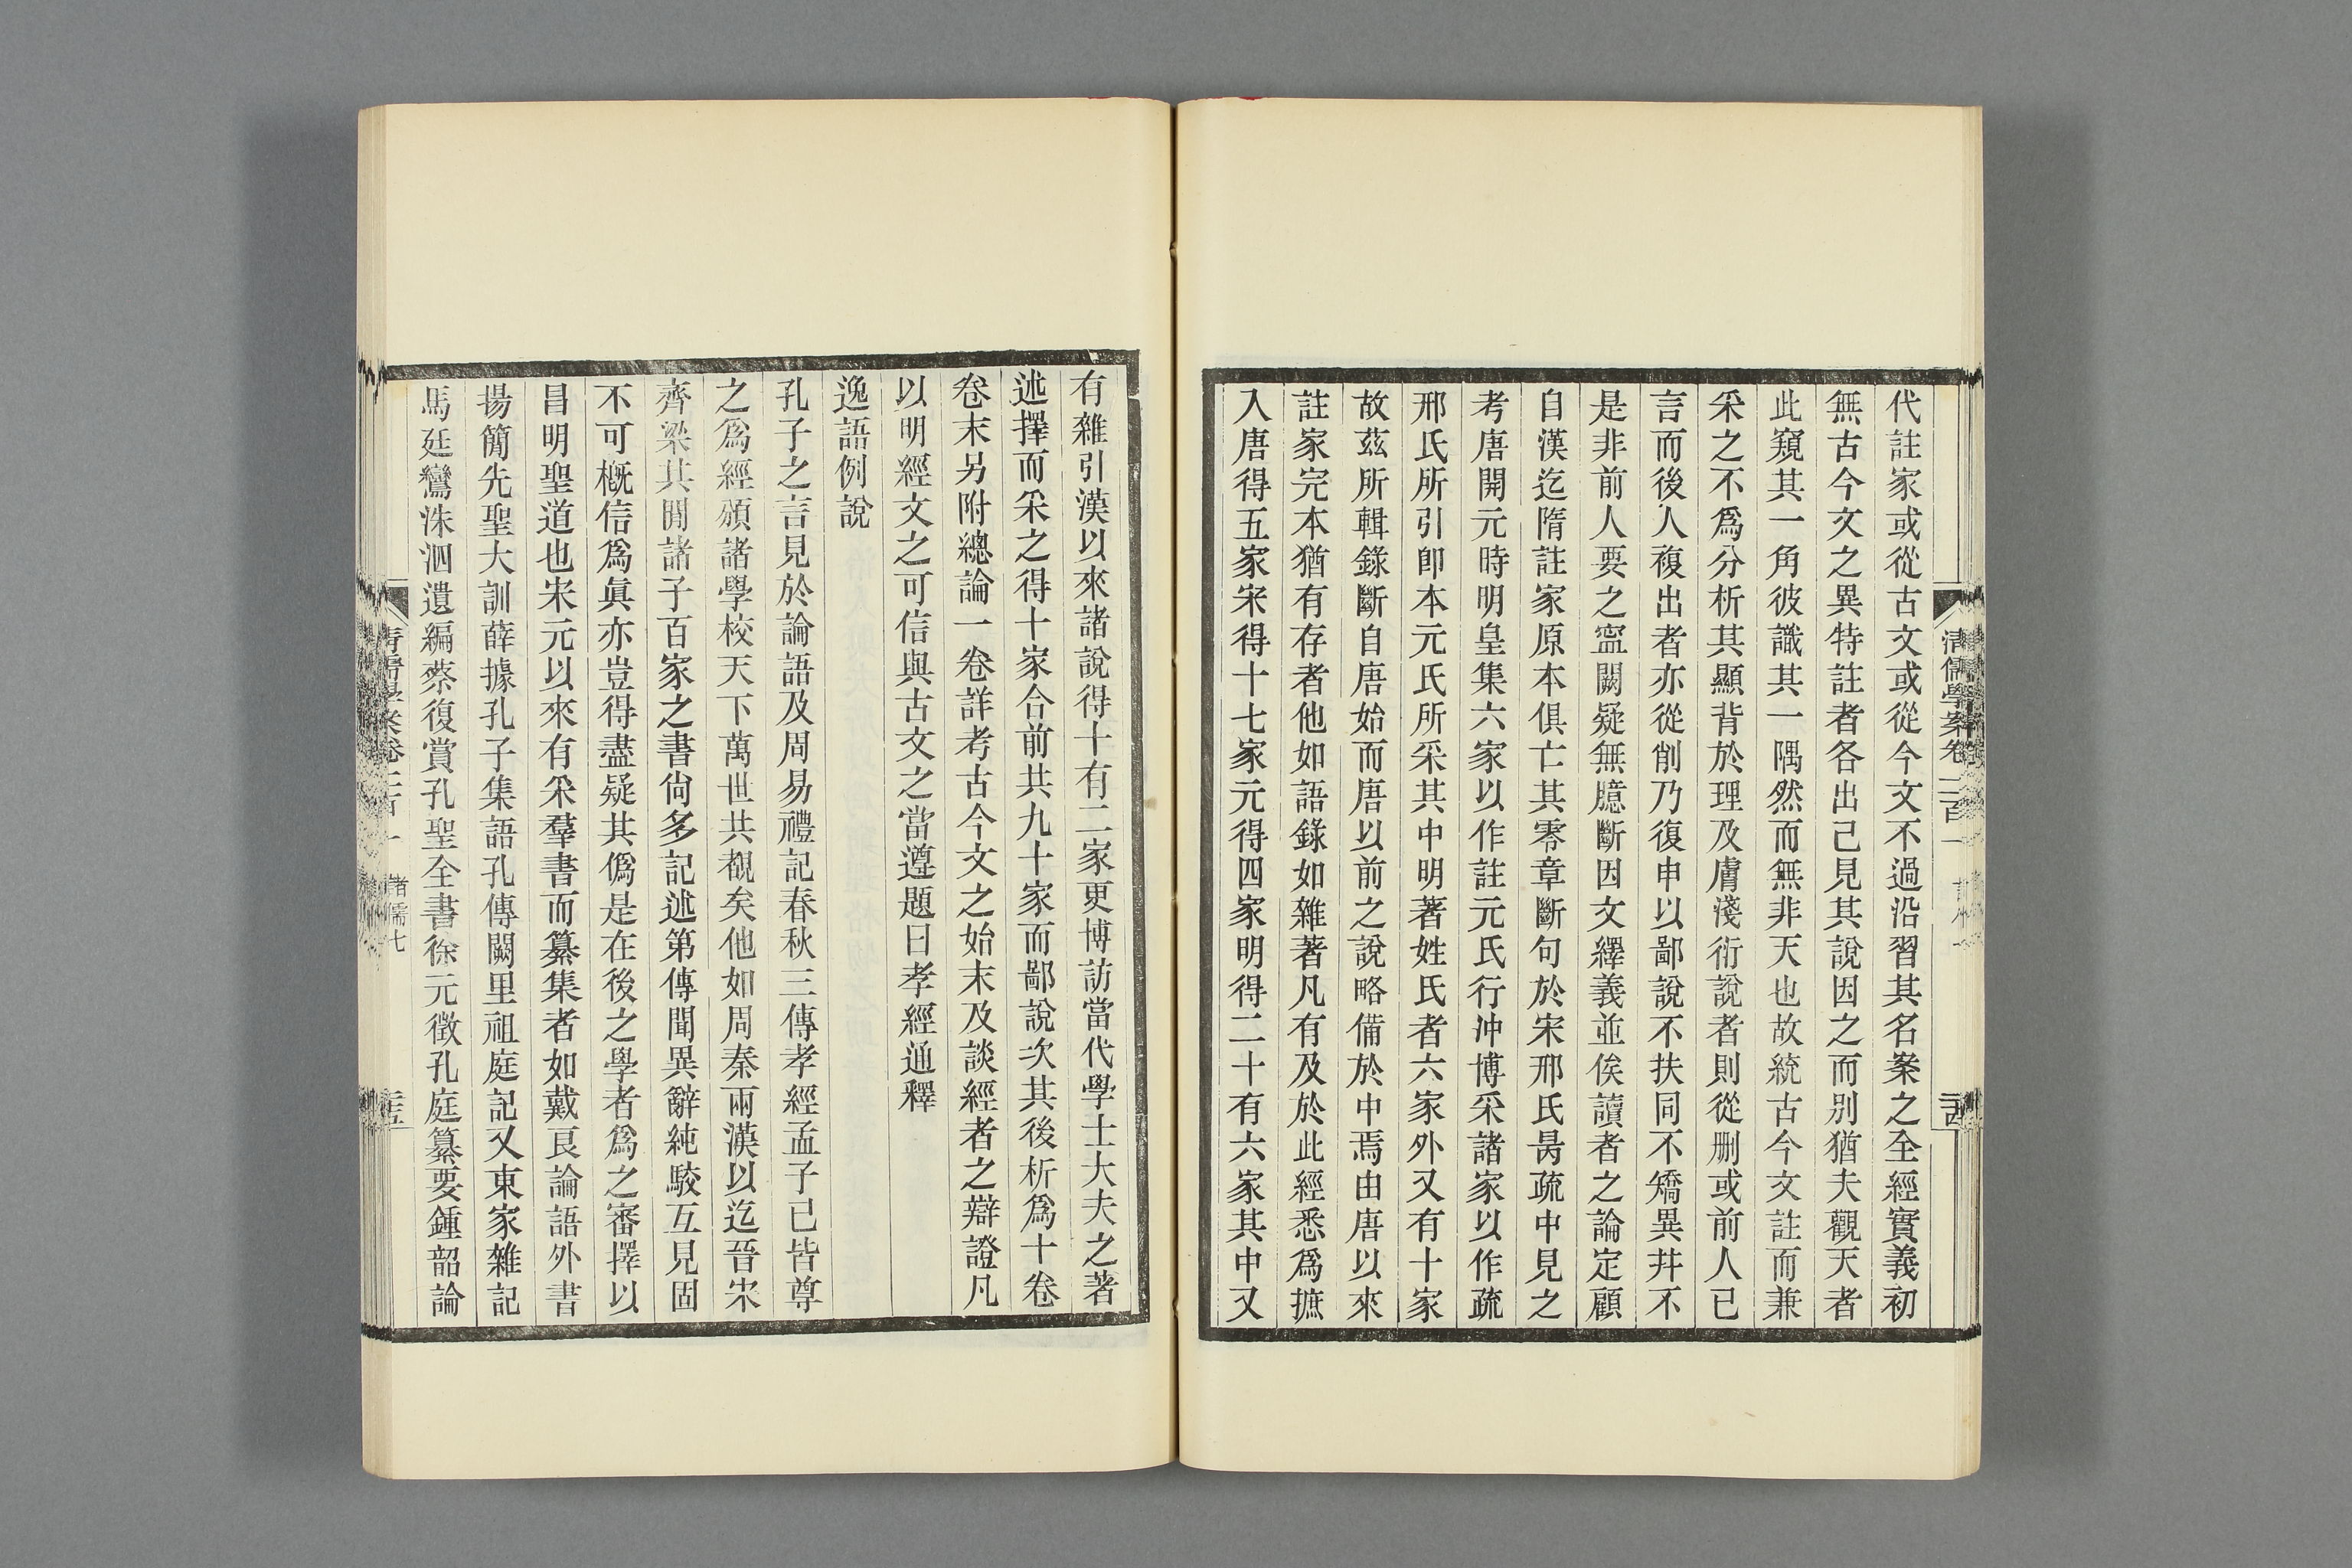 代註家或從古文或從今文不過沿習其名案之全經實義初
無古今文之異特註者各出己見其說因之而別猶夫觀天者
此窺其一角彼識其一隅然而無非天也故統古今文註而兼
采之不爲分析其顯背於理及膚淺衍說者則從刪或前人已
言而後人複出者亦從削乃復申以鄙說不扶同不矯異幷不
是非前人要之寍闕疑無臆斷因文繹義並俟讀者之論定顧
自漢迄隋註家原本俱亡其零章斷句於宋邢氏昺疏中見之
考唐開元時明皇集六家以作註元氏行沖博采諸家以作疏
邢氏所引卽本元氏所采其中明著姓氏者六家外又有十家
故茲所輯錄斷自唐始而唐以前之說略備於中焉由唐以來
註家完本猶有存者他如語錄如雜著凡有及於此經悉爲摭
入唐得五家宋得十七家元得四家明得二十有六家其中又
清儒學案卷二百一
有雜引漢以來諸說得十有二家更博訪當代學士大夫之著
述擇而采之得十家合前共九十家而鄙說次其後析爲十卷
卷末另附總論一卷詳考古今文之始末及談經者之辯證凡
以明經文之可信與古文之當遵題曰孝經通釋
逸語例說
孔子之言見於論語及周易禮記春秋三傳孝經孟子已皆尊
之爲經頒諸學校天下萬世共覩矣他如周秦兩漢以迄晉宋
齊梁其閒諸子百家之書尙多記述第傳聞異辭純駮互見固
不可概信爲眞亦豈得盡疑其僞是在後之學者爲之審擇以
昌明聖道也宋元以來有采羣書而纂集者如戴良論語外書
揚簡先聖大訓薛據孔子集語孔傳闕里祖庭記又東家雜記
馬廷鸞洙泗遺編蔡復賞孔聖全書徐元徵孔庭纂要鍾韶論
清儒學案卷二百一 諸儒七